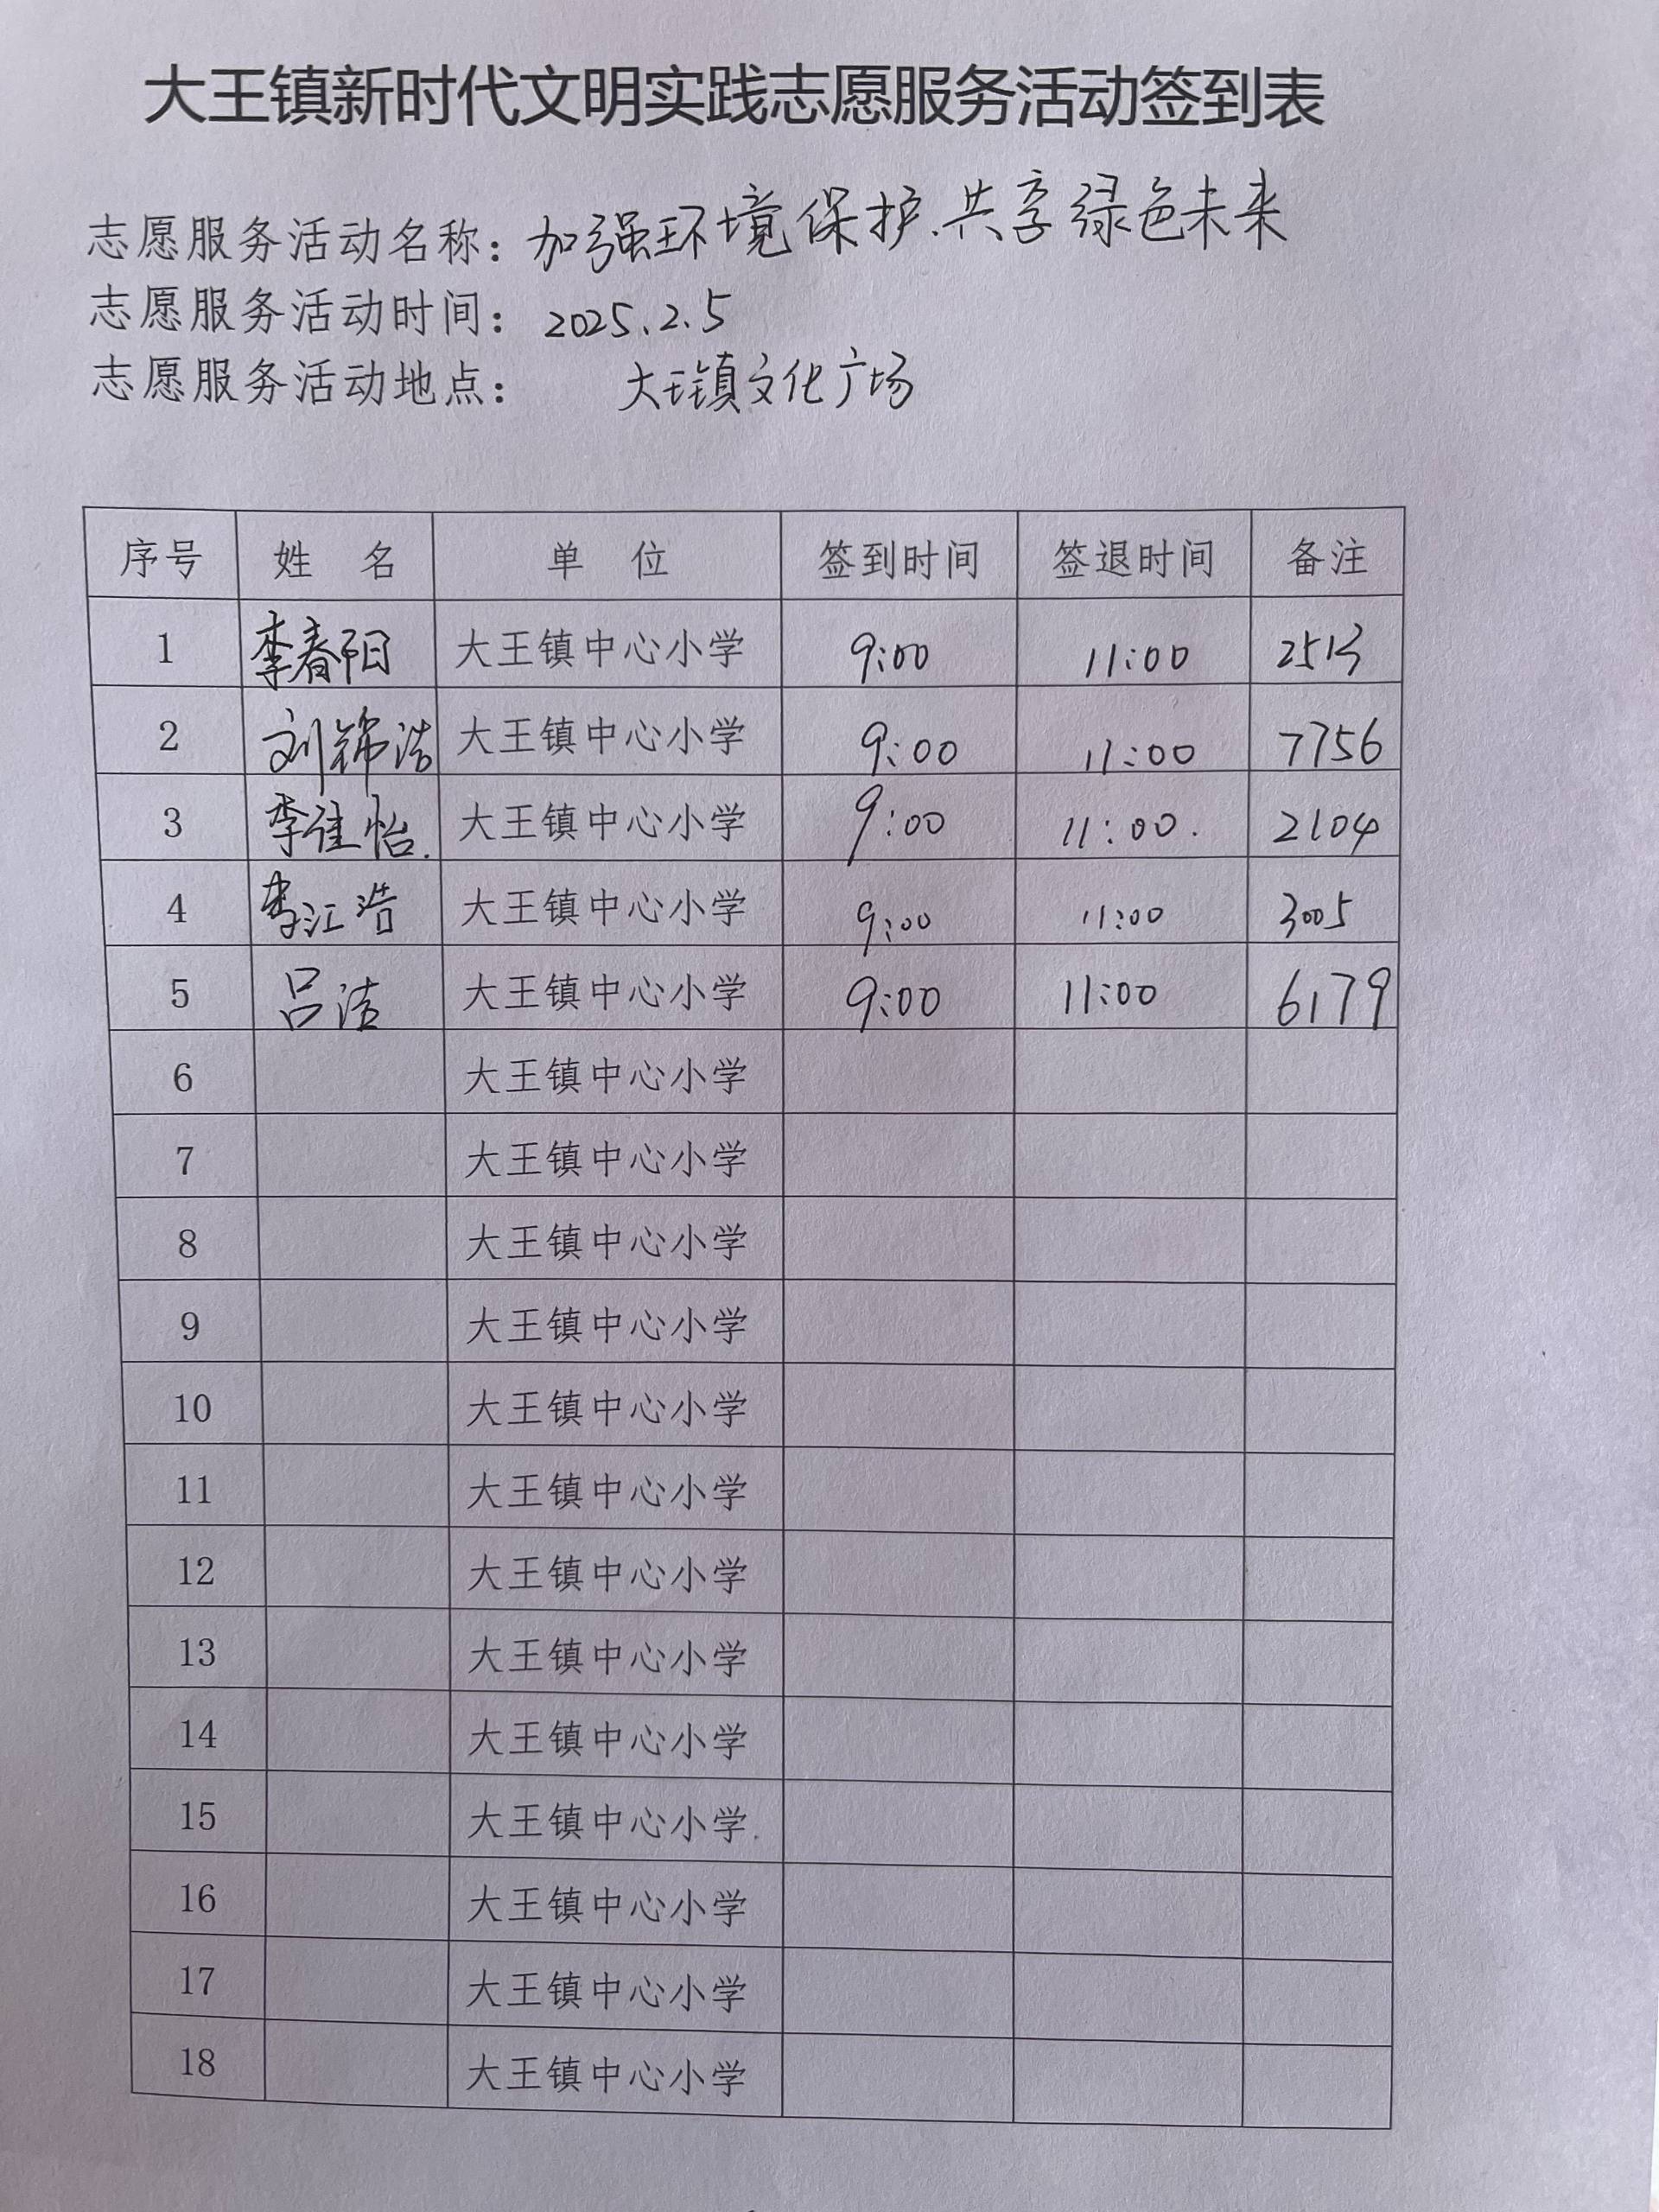 大王镇新时代文明实践志愿服务活动签到表
志愿服务活动名称：加强环境保护.共享绿色未来
志愿服务活动时间：2025.2.5
志愿服务活动地点：大王镇文化广场
序号 姓 名 单 位 签到时间 签退时间 备注
1 李春阳 大王镇中心小学 9:00 11:00 2513
2 刘锦浩 大王镇中心小学 9:00 11:00 7756
3 李佳怡. 大王镇中心小学 9:00 11:00. 2104
4 李江浩 大王镇中心小学 9:00 11:00 3005
5 吕洁 大王镇中心小学 9:00 11:00 6179
6 大王镇中心小学
7 大王镇中心小学
8 大王镇中心小学
9 大王镇中心小学
10 大王镇中心小学
11 大王镇中心小学
12 大王镇中心小学
13 大王镇中心小学
14 大王镇中心小学
15 大王镇中心小学
16 大王镇中心小学
17 大王镇中心小学
18 大王镇中心小学